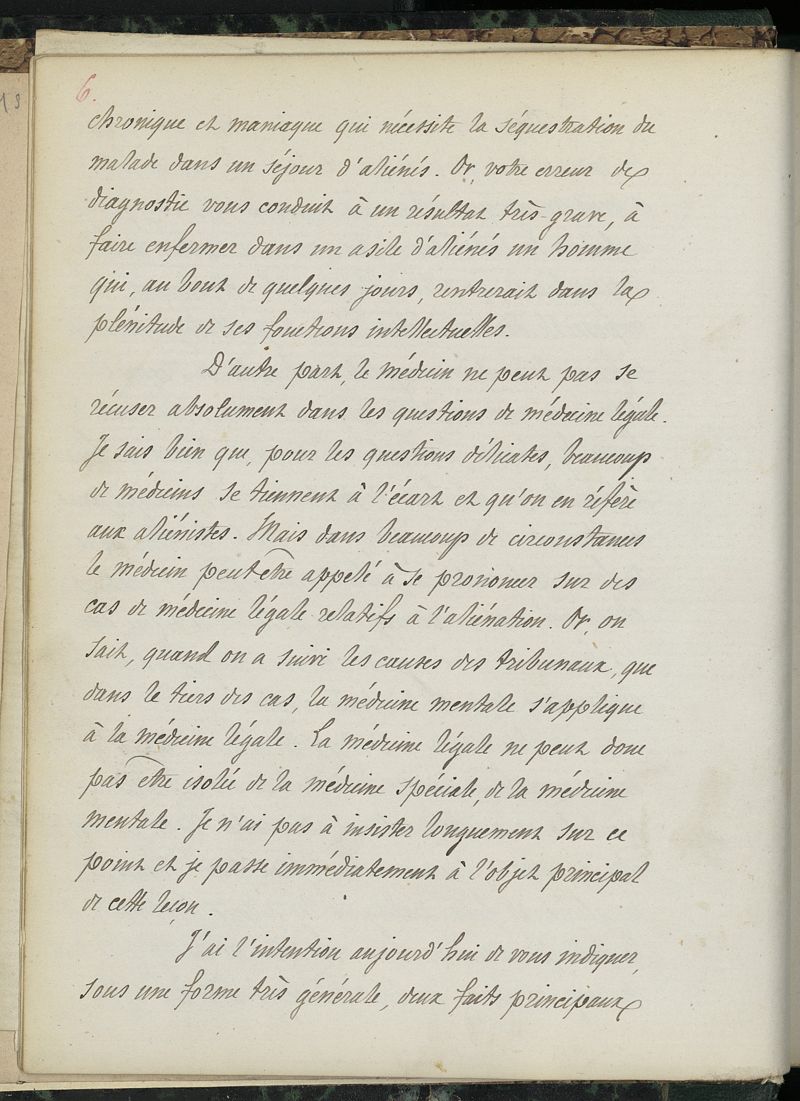 6.
chronique et maniaque qui nécessite la séquestration du
malade dans un séjour d'aliénés. Or, votre erreur de
diagnostic vous conduit à un résultat très-grave, à
faire enfermer dans un asile d'aliénés un homme
qui, au bout de quelques jours, rentrerait dans la
plénitude de ses fonctions intellectuelles.
D'autre part, le médecin ne peut pas se
récuser absolument dans les questions de médecine légale.
Je sais bien que, pour les questions délicates, beaucoup
de médecins se tiennent à l'écart et qu'on en réfère
aux aliénistes. Mais dans beaucoup de circonstances
le médecin peut être appelé à se prononcer sur des
cas de médecine légale relatifs à l'aliénation. Or, on
sait, quand on a suivi les causes des tribunaux, que
dans le tiers des cas, la médecine mentale s'applique
à la médecine légale. La médecine légale ne peut donc
pas être isolée de la médecine spéciale, de la médecine
mentale. Je n'ai pas à insister longuement sur ce
point et je passe immédiatement à l'objet principal
de cette leçon.
J'ai l'intention aujourd'hui de vous indiquer,
sous une forme très générale, deux faits principaux